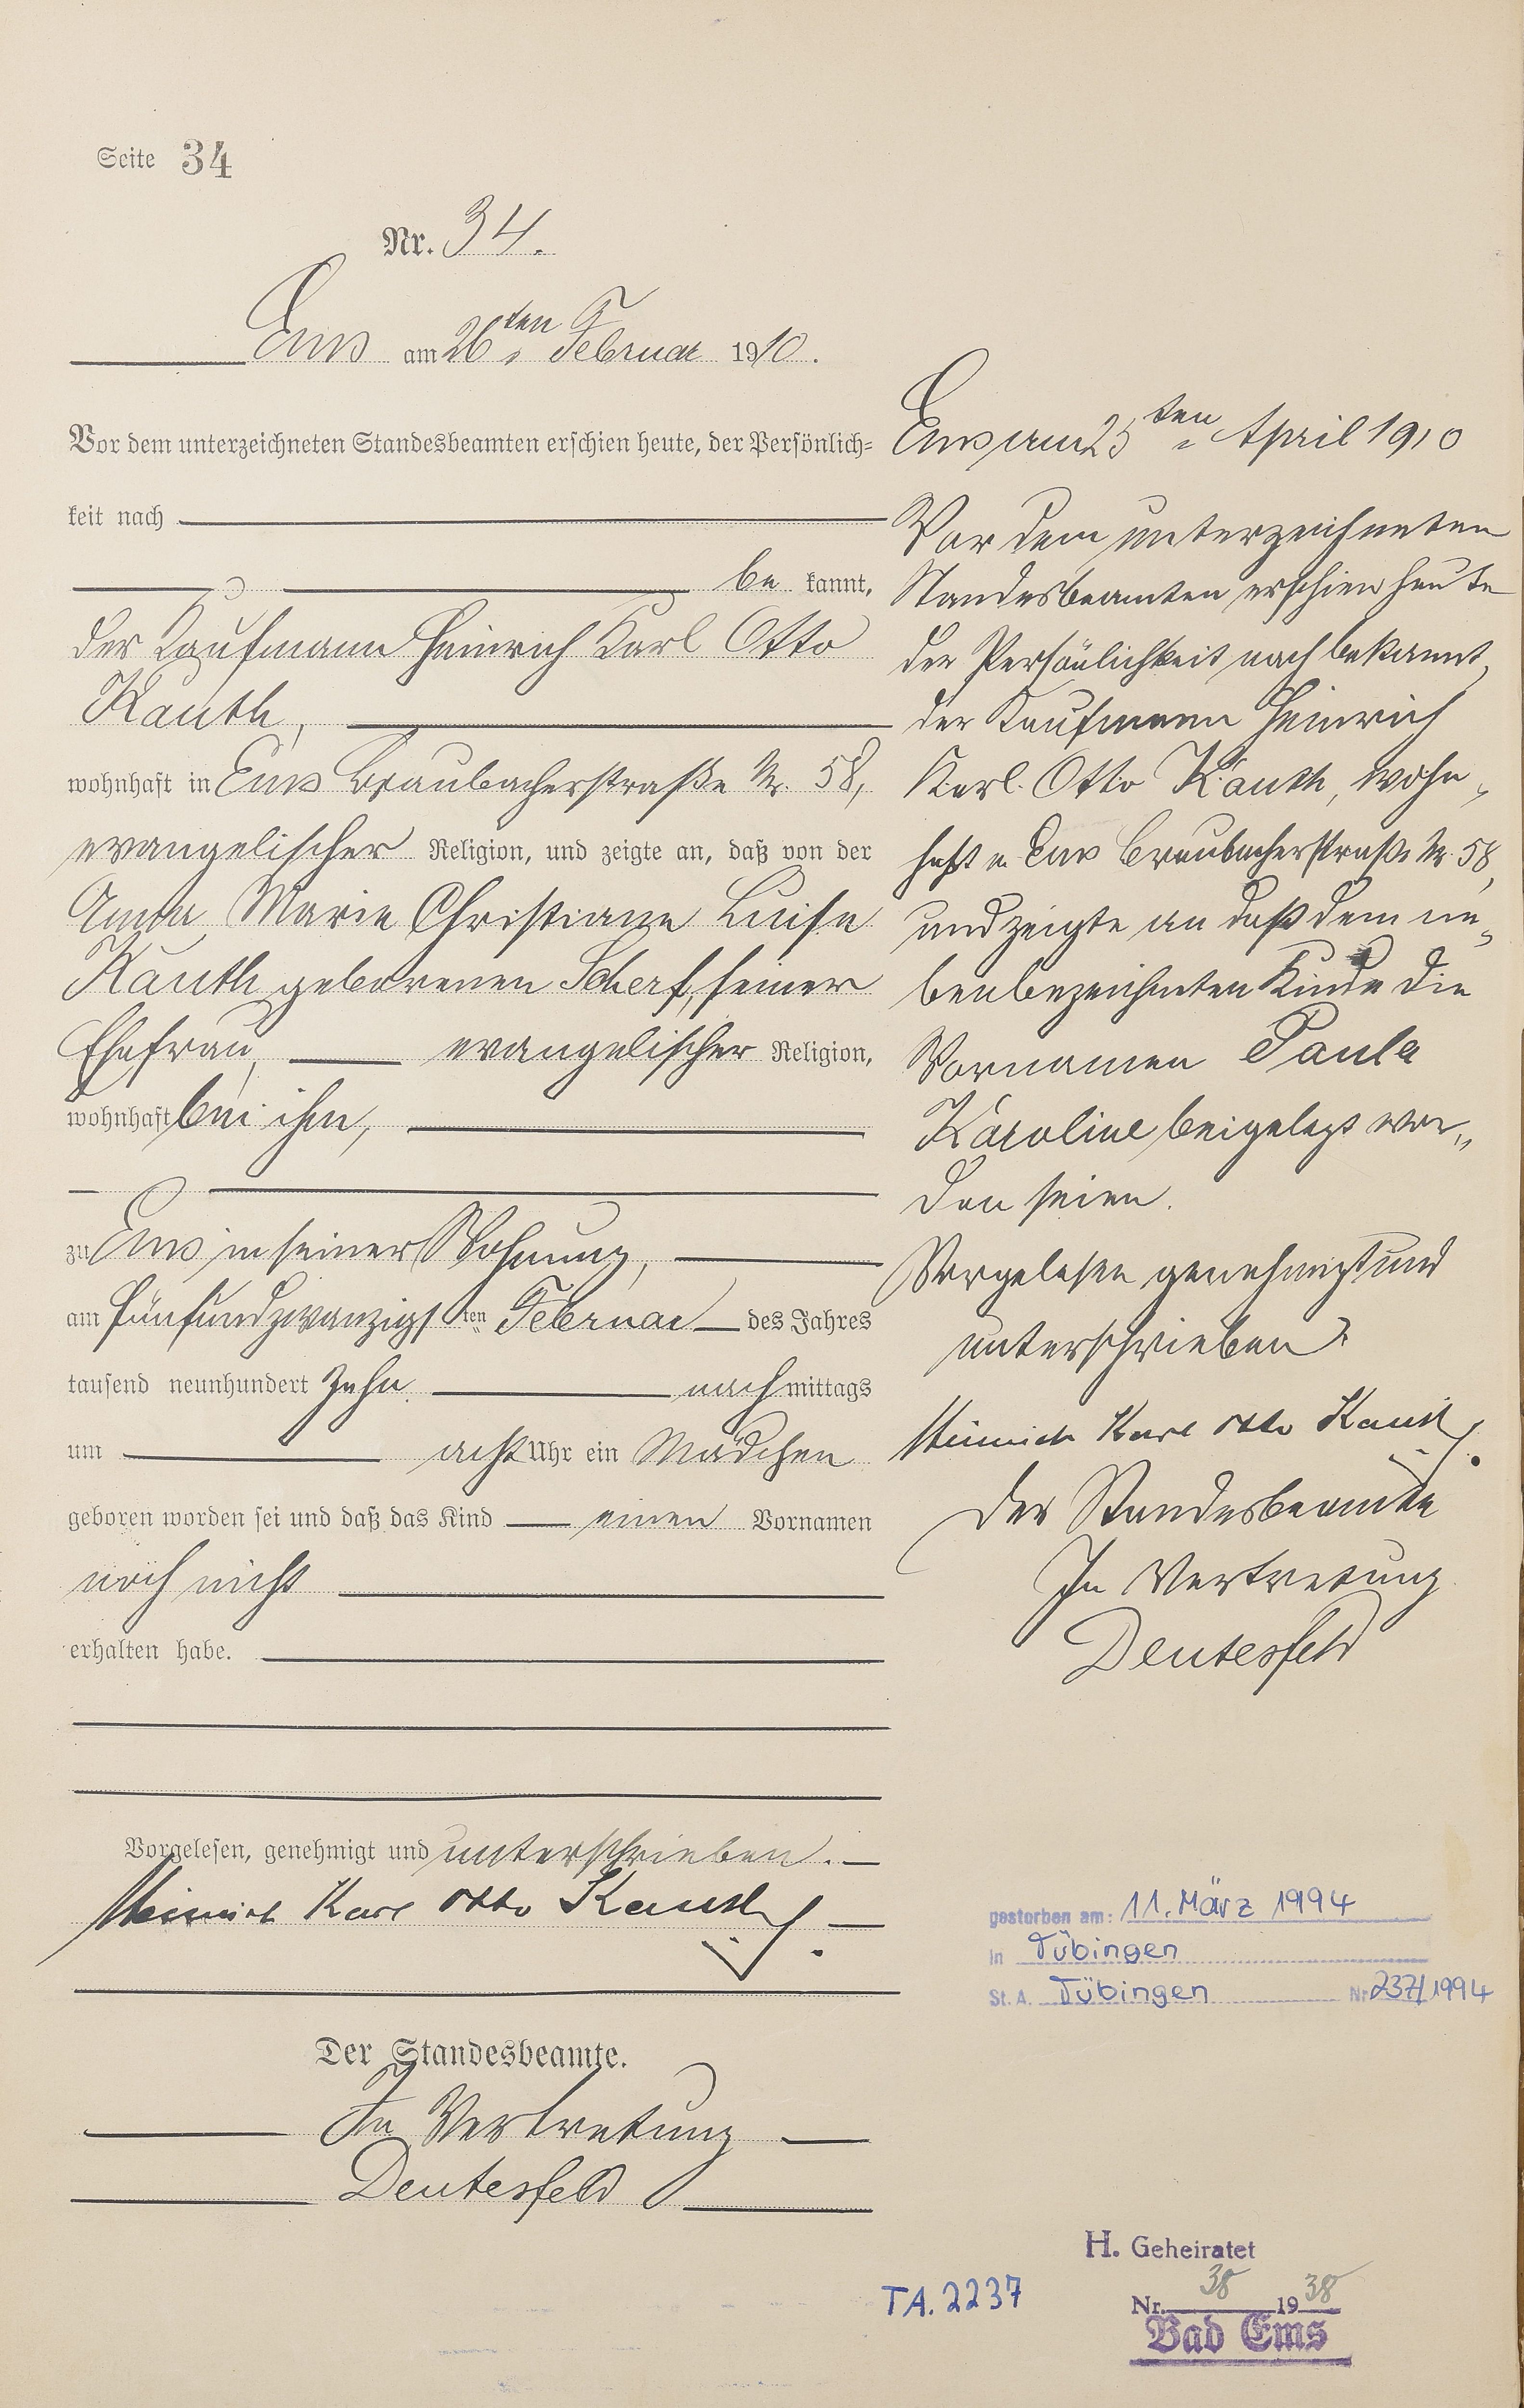 Seite 34
Nr. 34.
Ems am 26ten Februar 1910.
Vor dem unterzeichneten Standesbeamten erschien heute, der Persönlich=
keit nach
be kannt,
der Kaufmann Heinrich Karl Otto
Kauth,
wohnhaft in Ems Braubacherstraße Nr. 58,
evangelischer Religion, und zeigte an, daß von der
Anna Marie Christiane Luise
Kauth geborenen Scherf, seiner
Ehefrau, evangelischer Religion,
wohnhaft bei ihm,
zu Ems in seiner Wohnung,
am fünfundzwanzigsten Februar des Jahres
tausend neunhundert zehn nachmittags
um acht Uhr ein Mädchen
geboren worden sei und daß das Kind einen Vornamen
noch nicht
erhalten habe.
Vorgelesen, genehmigt und unterschrieben.
Heinrich Karl Otto Kauth.
Der Standesbeamte.
In Vertretung
Deutesfeld
Ems am 25ten April 1910
Vor dem unterzeichneten
Standesbeamten erschien heute
der Persönlichkeit nach bekannt,
der Kaufmann Heinrich
Karl Otto Kauth, wohn„
haft in Ems Braubacherstraße Nr. 58,
und zeigte an daß dem ne„
benbezeichneten Kinde die
Vornamen Paula
Karoline beigelegt wor„
den seien.
Vorgelesen genehmigt und
unterschrieben
Heinrich Karl Otto Kauth.
Der Standesbeamte
In Vertretung
Deutesfeld
gestorben am: 11. März 1994
in Tübingen
St. A. Tübingen Nr 237/1994
H. Geheiratet
Nr. 38 1938
Bad Ems
TA. 2237